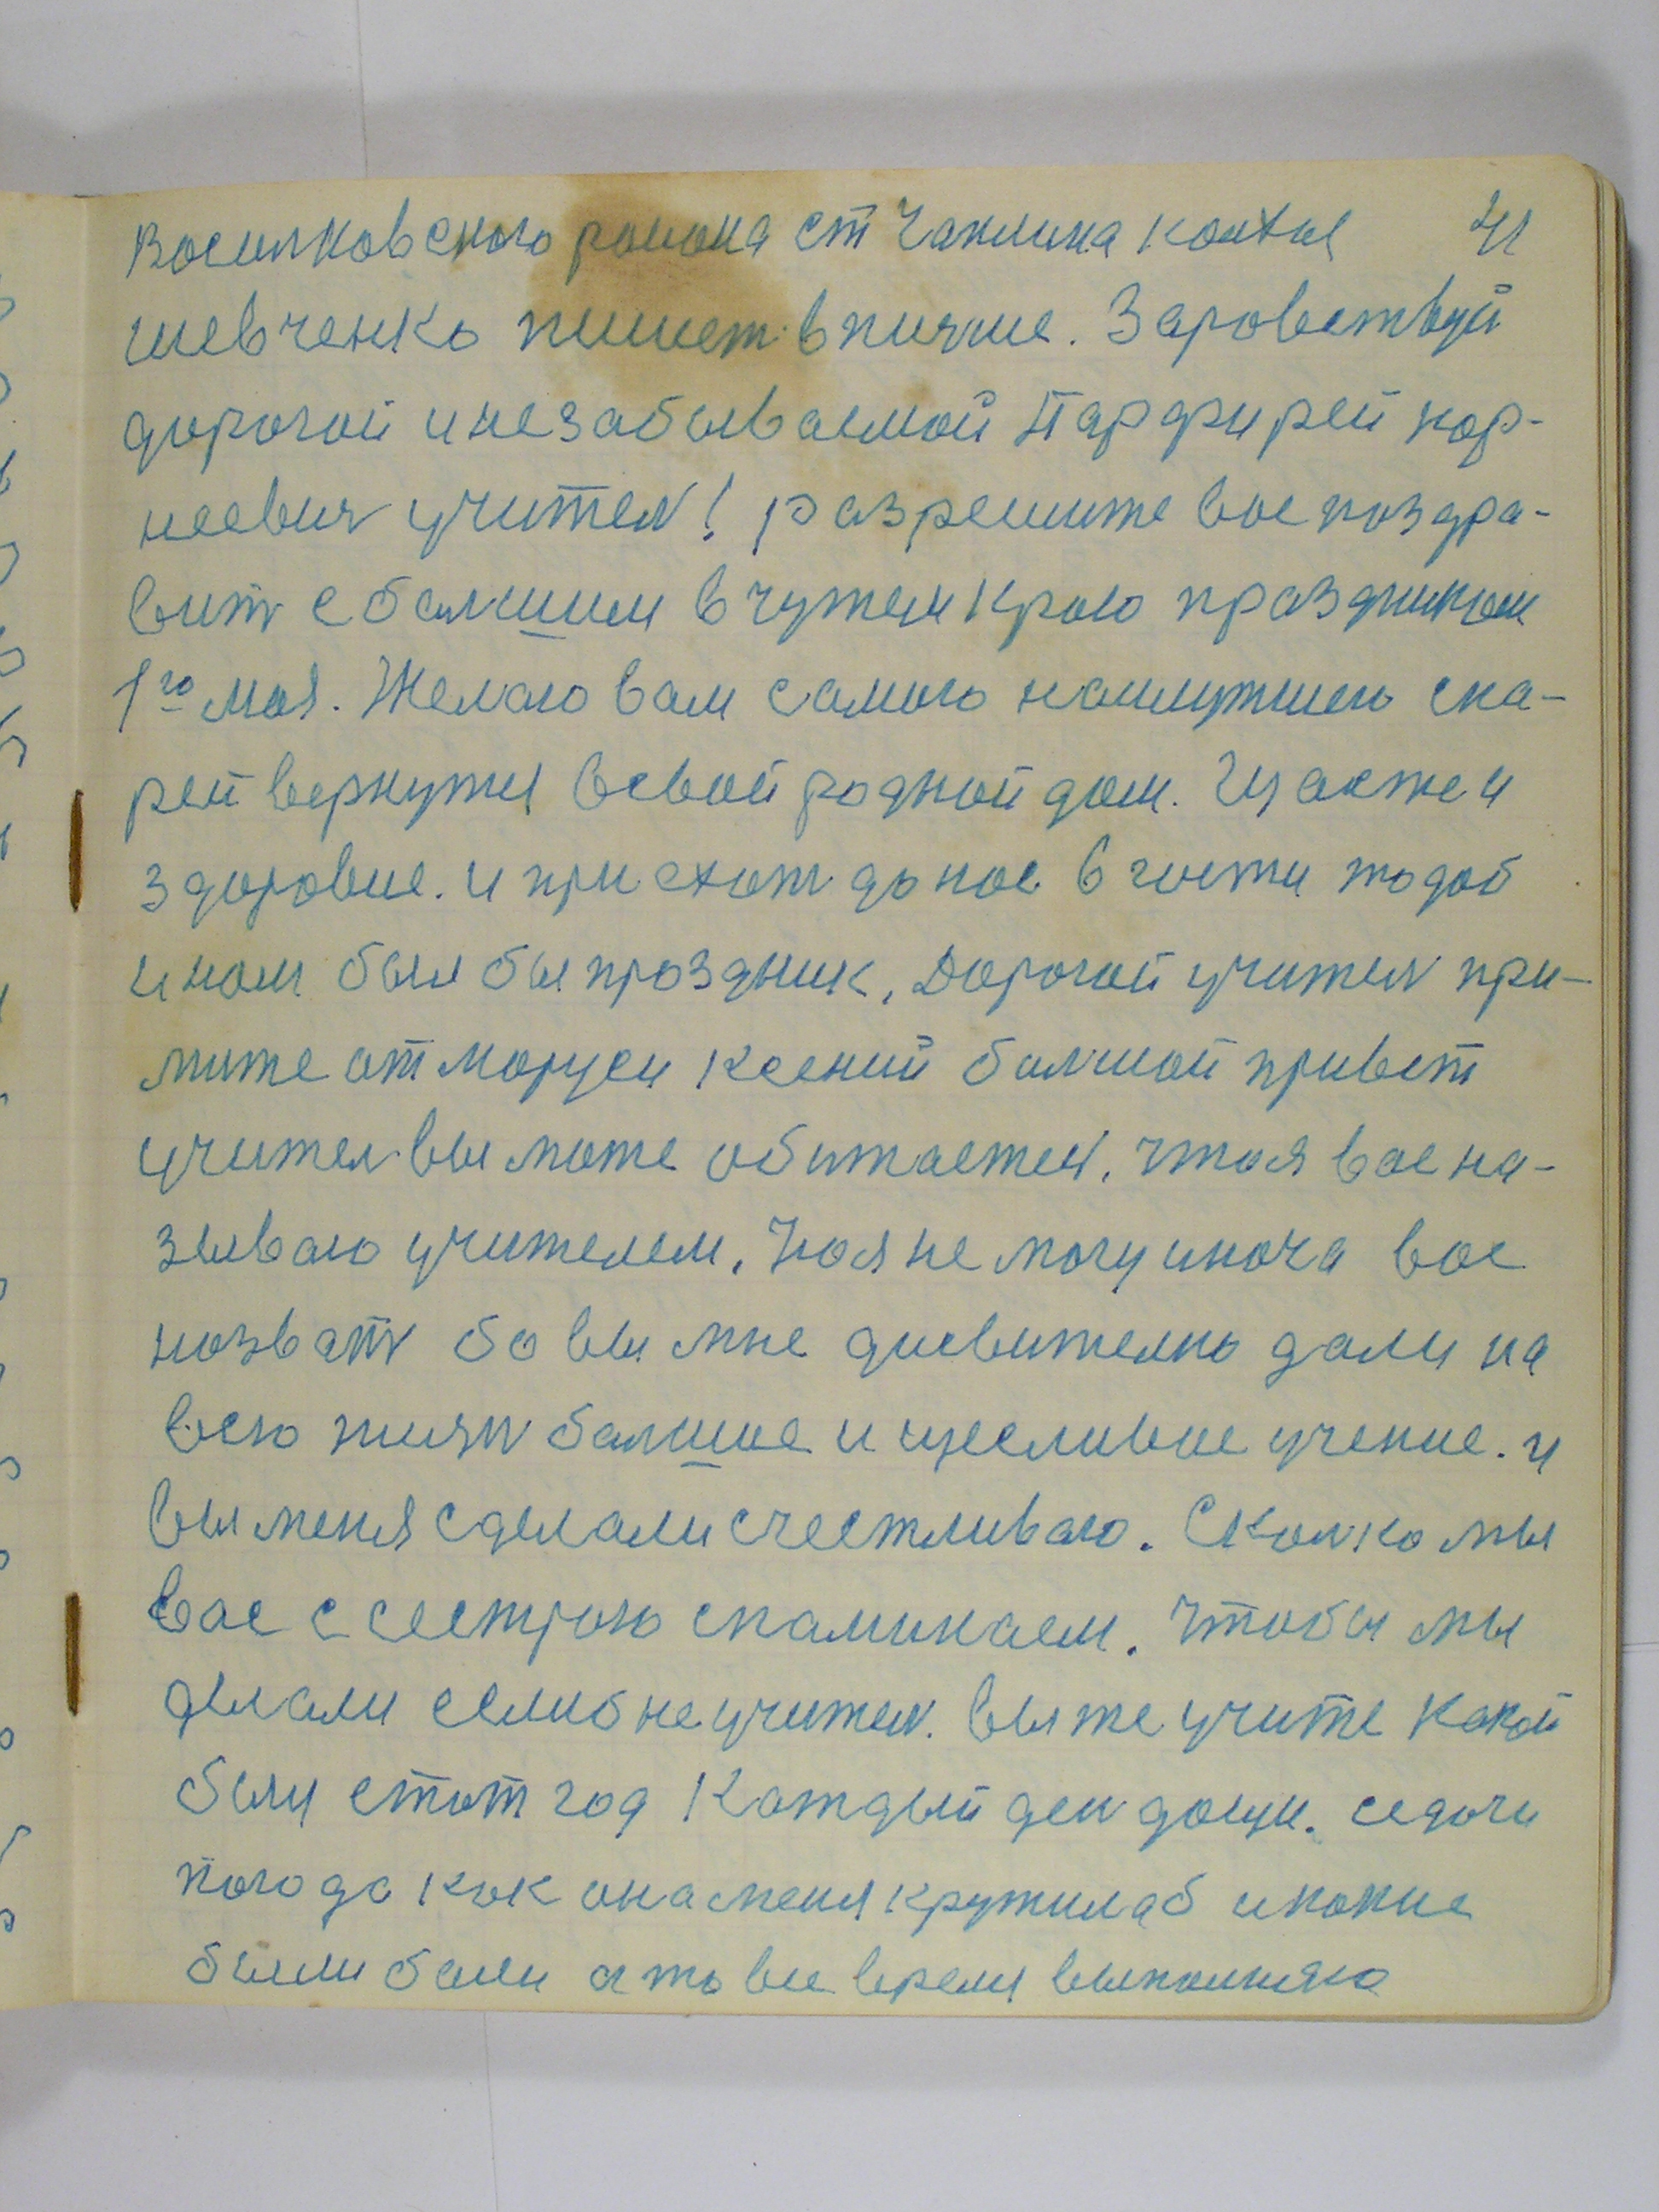 Восилковского района ст Чаплина колхоз
шевченко пишет в письме. Заровствуй
дорогой и незабываемой Парфирей кор-
неевич учител! разрешите вос поздра-
вит с балшим в чужем краю празником
1го мая. Желаю вам самого наилутшего ска-
рей вернутся в свой родной дом. Щастя и
здоровие. и приехат до нас в гости тодаб
и нам был бы праздник, Дорогой учител при-
мите от Маруси Ксений балшой привет
учител вы може обитаетеся, что я вас на-
зываю учителем, Но я не могу иноча вас
назват бо вы мне дисвително дали на
всю жизн балшие и щесливое учение. и
вы меня сделали счестливаю. Сколко мы
вас с сестрою спаминаем. Что бы мы
делали еслиб не учител. вы же учите какой
были етот год Каждый ден дощи.
погода как она меня кружилаб и какие
были боли а то все время выполняю